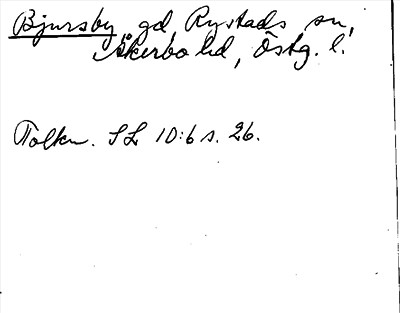 Bjursby, gd Rystads sn,
Åkerbo hd, Östg. l.
Tolkn. SL 10:6 s. 26.